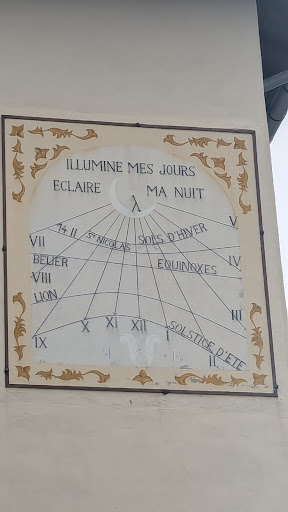 ILLUMINE MES JOURS
ECLAIRE MA NUIT
V
14 II Sᵀ NICOLAS SOLS D'HIVER
VII
BELIER EQUINOXES IV
VIII
LION
III
X XI XII I SOLSTICE D'ETE
IX
II